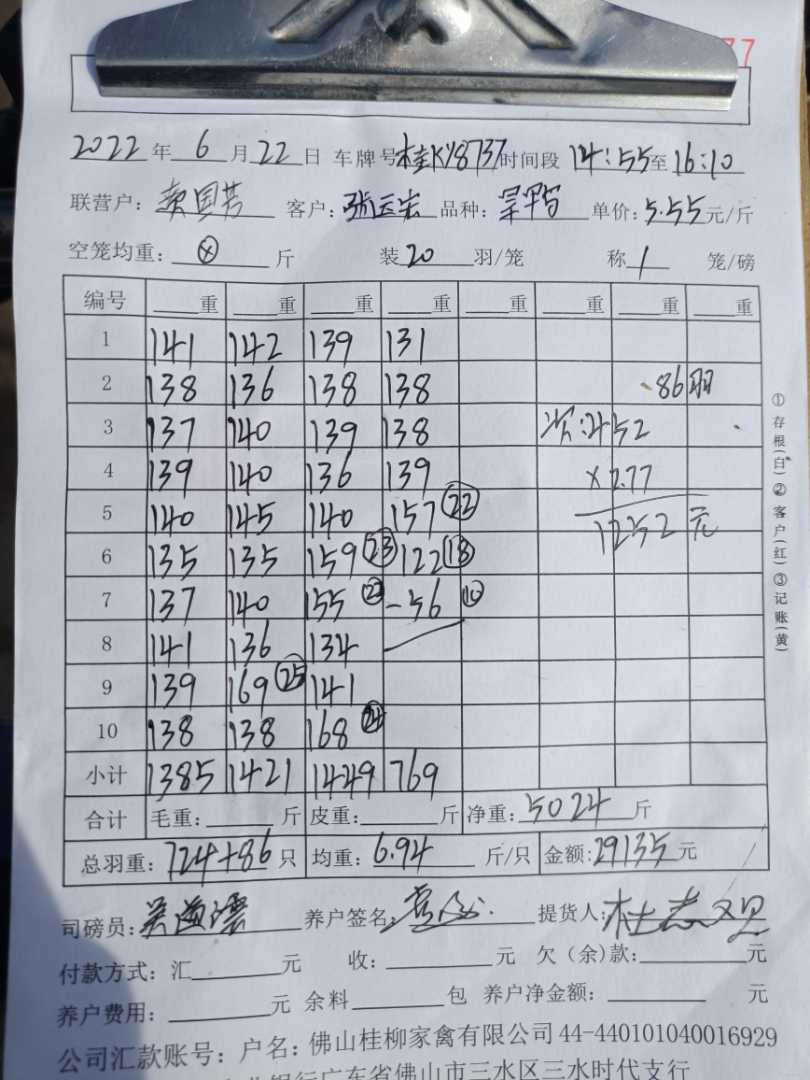 77
2022年6月22日 车牌号桂KY8737时间段14:55至16:10
联营户: 国芳 客户:张运宏 品种: 单价:5.55元/斤
空笼均重:ⓧ斤 装20羽/笼 称1笼/磅
编号 重 重 重 重 重 重 重 重
1 141 142 139 131
2 138 136 138 138 86羽
3 137 140 139 138 :452
4 139 140 136 139 ×2.77
5 140 145 140 157 ㉒ 1252元
6 135 135 159 ㉓ 122 ⑱
7 137 140 155 -56 ⑩
8 141 136 134
9 139 169 ㉕ 141
10 138 138 168 ㉔
小计 1385 1421 1449 769
合计 毛重:斤 皮重:斤 净重:5024斤
总羽重:724+86只 均重:6.94斤/只 金额:29135元
司磅员: 养户签名: 提货人:杜志
付款方式:汇元 收:元 欠(余)款:元
养户费用:元 余料包 养户净金额:元
公司汇款账号:户名:佛山桂柳家禽有限公司44-440101040016929
银行广东省佛山市三水区三水时代支行
①存根(白)②客户(红)③记账(黄)